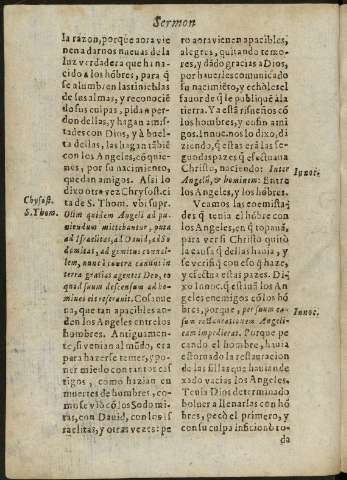 Sermon
la razon, porque aora vie
nen a darnos nueuas de la
luz verdadera que ha na-
cido a los hõbres, para q̃
se alumbren las tinieblas
de sus almas, y reconociẽ
do sus culpas, pidan per-
don dellas, y hagan amis-
tades con Dios, y à buel-
ta dellas, las hagan tãbiẽ
con los Angeles, cõ quie-
nes, por su nacimiento,
quedan amigos. Assi lo
dixo otra vez Chrysost. ci
Chrysost.
S. Thom.
ta de S. Thom. vbi supr.
Olim quidem Angeli ad pu-
niendum mittebantur, puta
ad Israelitas, ad Dauid, ad So
domitas, ad
nunc è contra
terra gratias agentes Deo, eo
quod suum descensum ad ho-
mines eis reserauit. Cosa nue
ua, que tan apacibles an-
den los Angeles entre los
hombres. Antiguamen-
te, si venian al mũdo, era
para hazerse temer, y po-
ner miedo con tantos cas
tigos, como hazian en
muertes de hombres, co-
mo se viò cõ los Sodomi
tas, con Dauid, con los Is
raelitas, y otras vezes: pe
ro aora vienen apacibles,
alegres, quitando temo-
res, y dãdo gracias a Dios,
por hauerles comunicado
su nacimiẽto, y echòles el
fauor de q̃ le publiquẽ a la
tierra. Ya estã risueños cõ
los hombres, y en fin ami-
gos. Innoc. nos lo dixo, di
ziendo, q̃ estas erã las se-
gundas pazes q̃ efectuaua
Christo, naciendo: Inter
Angelũ, & hominem: Entre
Innoc.
los Angeles, y los hõbres.
Veamos las enemista-
des q̃ tenia el hõbre con
los Angeles, en q̃ topauã,
para ver si Christo quitò
la causa q̃ dellas hauia, y
se verifiq̃ con esso q̃ haze,
y efectua estas pazes. Di-
xo Innoc. q̃ estauã los An
geles enemigos cõ los hõ
bres, porque, per suum ca-
Innoc.
sum restaurationem Angeli-
cam impedierat. Porque pe
cando el hombre, hauia
estoruado la restauracion
de las sillas que hauian de
xado vacias los Angeles.
Tenia Dios determinado
boluer a llenarlas con hõ
bres, pecò el primero, y
con su culpa inficionò to-
da